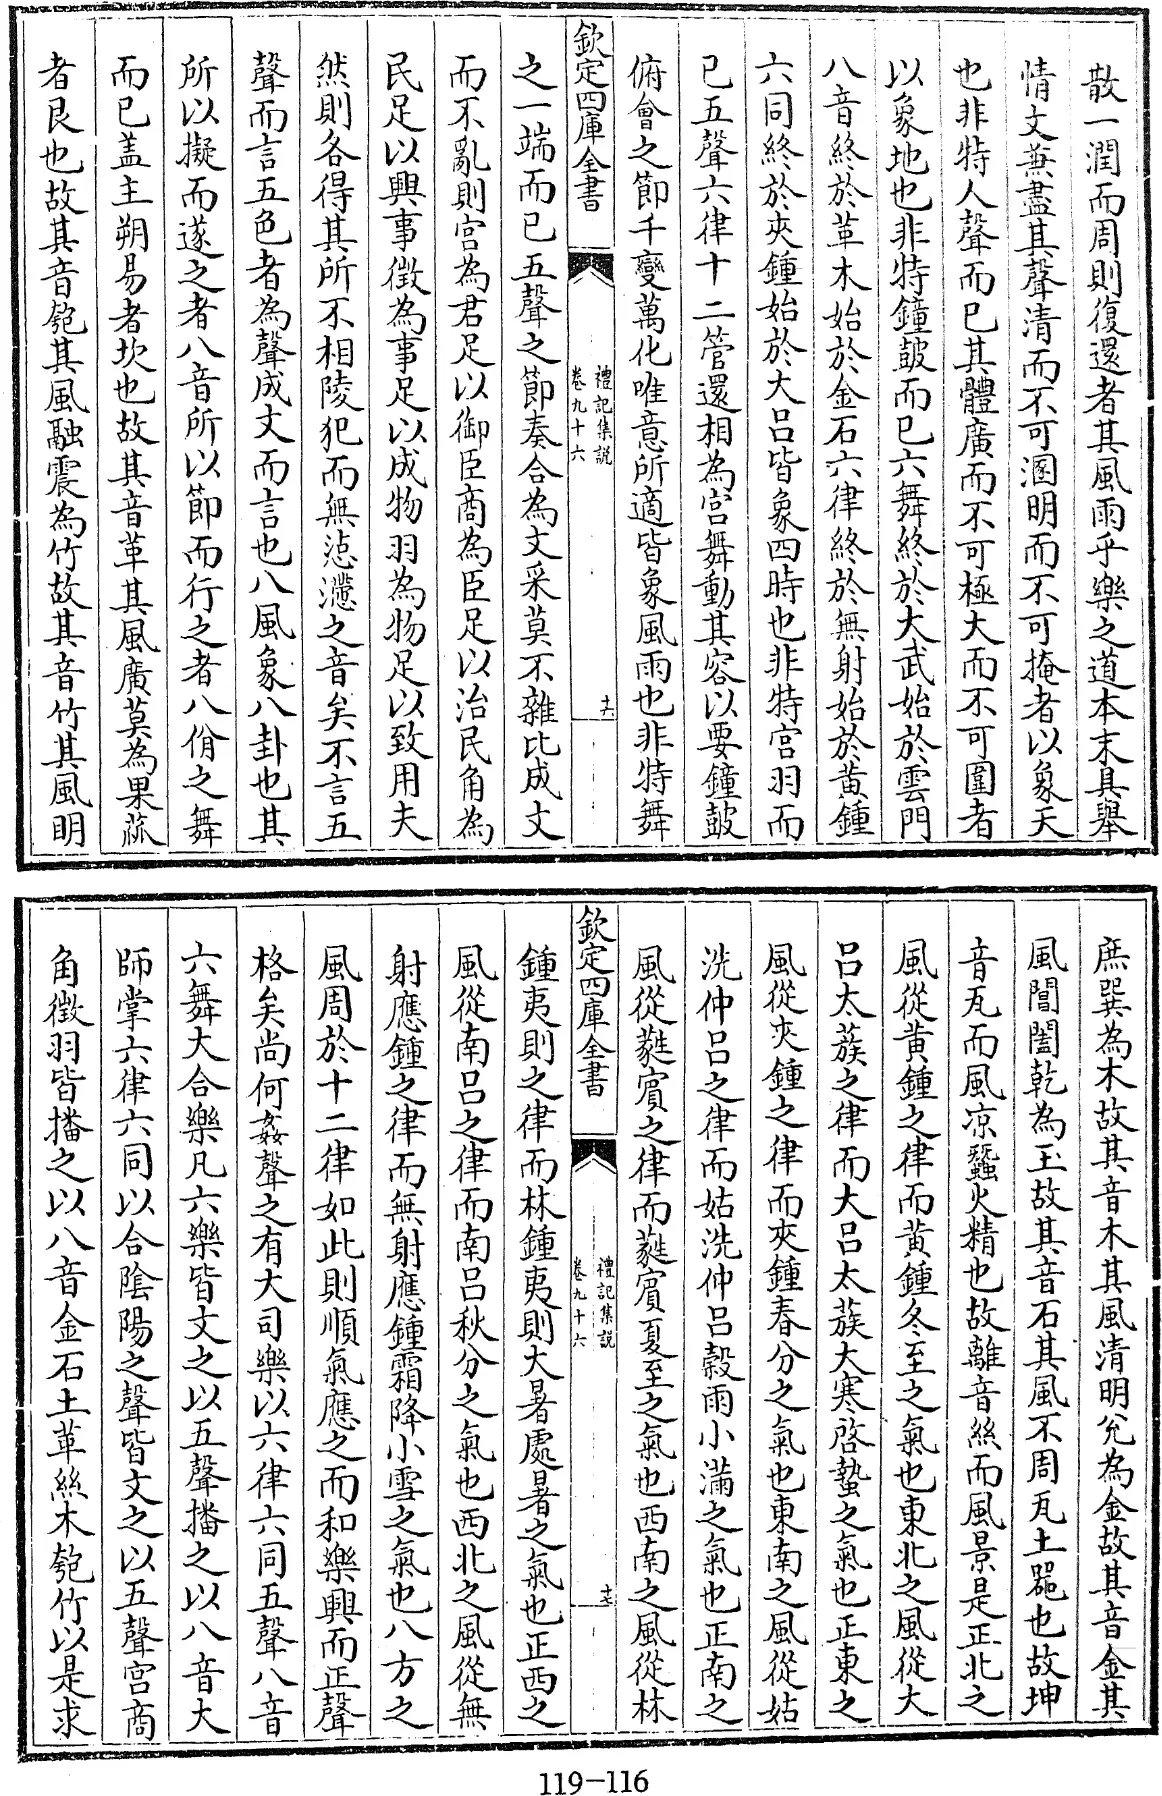 散一潤而周則復還者其風雨乎樂之道本末具舉
情文蕪盡其聲清而不可溷明而不可掩者以象天
也非特人聲而已其體廣而不可極大而不可圍者
以象地也非特鐘鼓而已六舞終於大武始於雲門
八音終於革木始於金石六律終於無射始於黄鍾
六同終於夾鍾始於大呂皆象四時也非特宫羽而
已五聲六律十二管還相為宫舞動其容以要鐘鼓
俯會之節千變萬化唯意所適皆象風雨也非特舞
欽定四庫全書
禮記集說
卷九十六
十六
之一端而已五聲之節奏合為文采莫不雜比成文
而不亂則宫為君足以御臣商為臣足以治民角為
民足以興事徴為事足以成物羽為物足以致用夫
然則各得其所不相陵犯而無怗懘之音矣不言五
聲而言五色者為聲成文而言也八風象八卦也其
所以擬而遂之者八音所以節而行之者八佾之舞
而已盖主朔易者坎也故其音革其風廣莫為果蓏
者艮也故其音匏其風融震為竹故其音竹其風明
庶巽為木故其音木其風清明兊為金故其音金其
風閶闔乾為玉故其音石其風不周瓦土器也故坤
音瓦而風凉蠶火精也故離音絲而風景是正北之
風從黄鍾之律而黄鍾冬至之氣也東北之風從大
呂太蔟之律而大呂太蔟大寒啓蟄之氣也正東之
風從夾鍾之律而夾鍾春分之氣也東南之風從姑
洗仲呂之律而姑洗仲呂穀雨小滿之氣也正南之
風從蕤賓之律而蕤賓夏至之氣也西南之風從林
欽定四庫全書
禮記集說
卷九十六
十七
鍾夷則之律而林鍾夷則大暑處暑之氣也正西之
風從南呂之律而南呂秋分之氣也西北之風從無
射應鍾之律而無射應鍾霜降小雪之氣也八方之
風周於十二律如此則順氣應之而和樂興而正聲
格矣尚何姦聲之有大司樂以六律六同五聲八音
六舞大合樂凡六樂皆文之以五聲播之以八音大
師掌六律六同以合陰陽之聲皆文之以五聲宫商
角徴羽皆播之以八音金石土革絲木匏竹以是求
119-116